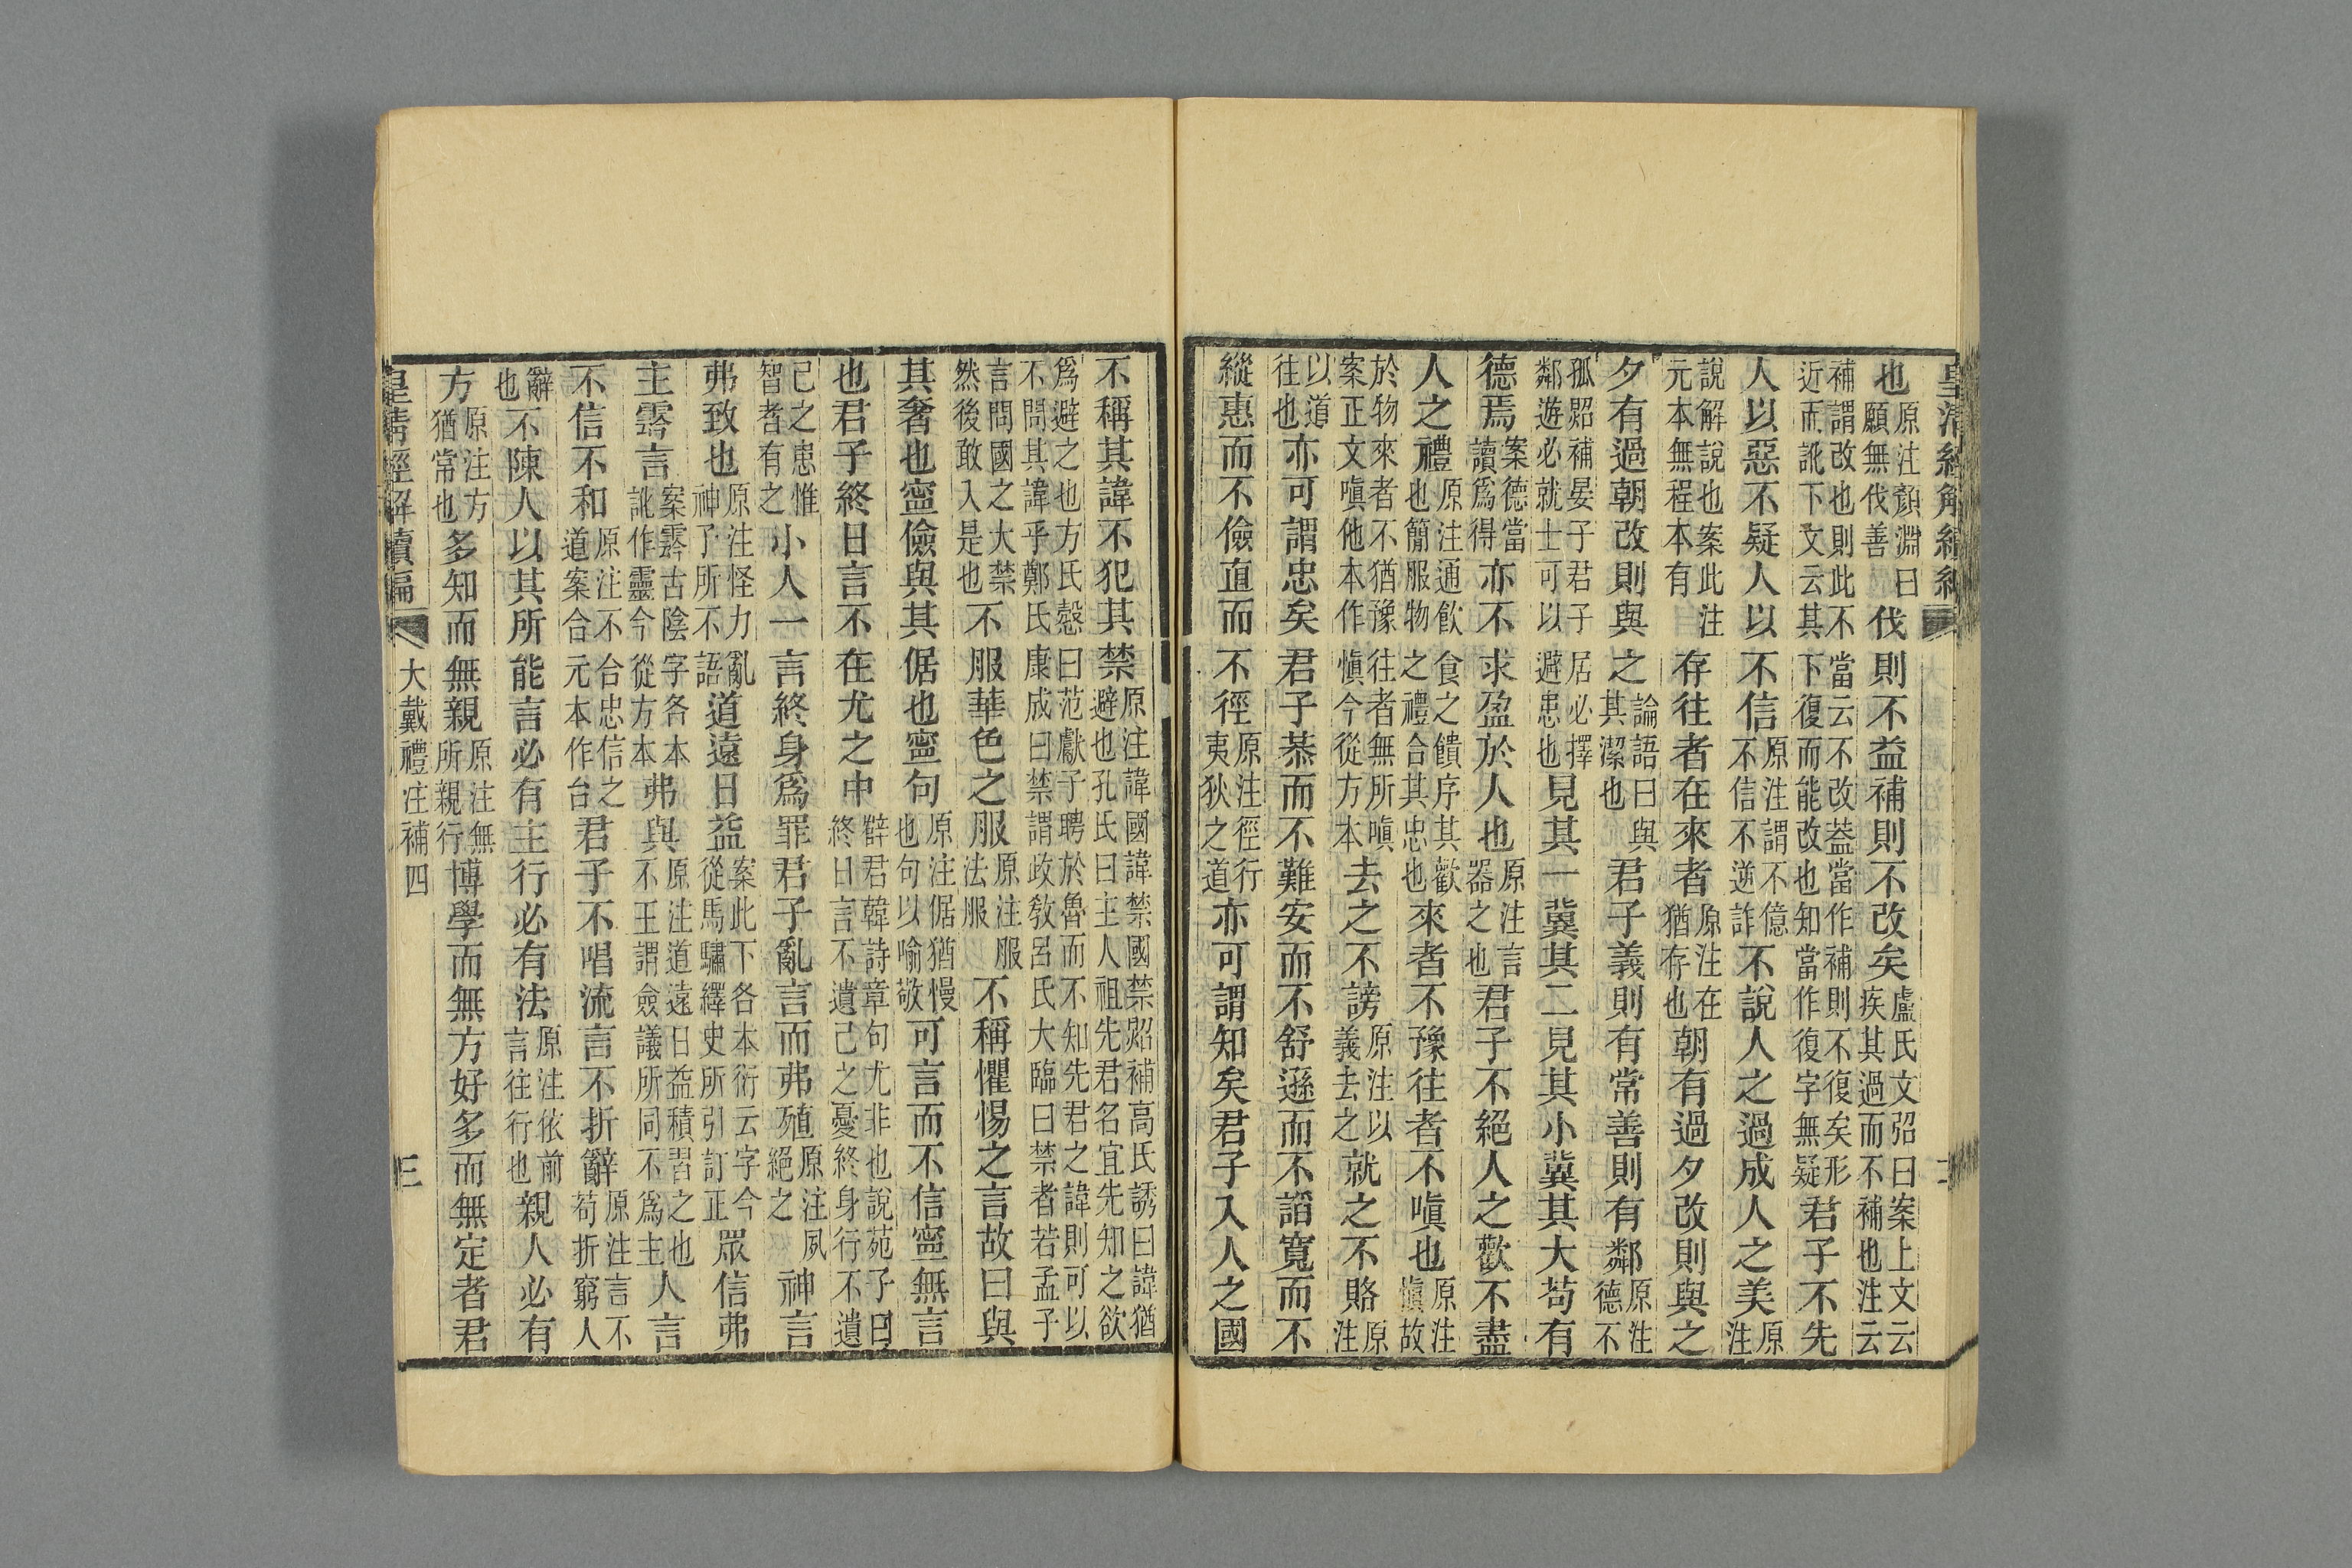 也原注顏淵曰願無伐善伐則不益補則不改矣盧氏文弨曰案上文云疾其過而不補也注云
補謂改也則此不當云不改葢當作補則不復矣形近而訛下文云其下復而能改也知當作復字無疑君子不先
人以惡不疑人以不信原注謂不億不信不逆詐不說人之過成人之美原注
說解說也案此注元本無程本有存往者在來者原注在猶存也朝有過夕改則與之
夕有過朝改則與之論語曰與其潔也君子義則有常善則有鄰原注德不
孤㷖補晏子君子居必擇鄰遊必就士可以避患也見其一冀其二見其小冀其大苟有
德焉案德當讀爲得亦不求盈於人也原注言器之也君子不絕人之歡不盡
人之禮原注通飲食之饋序其歡也簡服物之禮合其忠也來者不豫往者不嗔也原注愼故
於物來者不猶豫往者無所嗔案正文嗔他本作愼今從方本去之不謗原注以義去之就之不賂原注
以道往也亦可謂忠矣君子恭而不難安而不舒遜而不諂寬而不
縱惠而不儉直而不徑原注徑行夷狄之道亦可謂知矣君子入人之國
不稱其諱不犯其禁原注諱國諱禁國禁㷖補高氏誘曰諱猶避也孔氏曰主人祖先君名宜先知之欲
爲避之也方氏慤曰范獻子聘於魯而不知先君之諱則可以不問其諱乎鄭氏康成曰禁謂政敎呂氏大臨曰禁者若孟子
言問國之大禁然後敢入是也不服華色之服原注服法服不稱懼惕之言故曰與
其奢也寧儉與其倨也寧句原注倨猶慢也句以喻敬可言而不信寧無言
也君子終日言不在尤之中辥君韓詩章句尤非也說苑子曰終日言不遺己之憂終身行不遺
己之患惟智者有之小人一言終身爲罪君子亂言而弗殖原注夙絕之神言
弗致也原注怪力亂神子所不語道遠日益案此下各本衍云字今從馬驌繹史所引訂正眾信弗
主霿言案霿古陰字各本訛作靈今從方本弗與原注道遠日益積習之也不王謂僉議所同不爲主人言
不信不和原注不合忠信之道案合元本作台君子不唱流言不折辭原注言不苟折窮人
辭也不陳人以其所能言必有主行必有法原注依前言往行也親人必有
方原注方猶常也多知而無親原注無所親行博學而無方好多而無定者君
大戴禮注補四
三